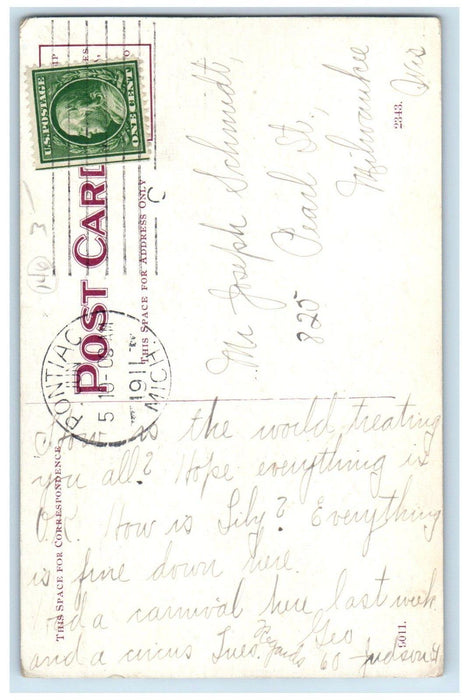 POST CARD
THIS SPACE FOR ADDRESS ONLY
THIS SPACE FOR CORRESPONDENCE
U.S. POSTAGE
ONE CENT
PONTIAC
JUN
5 10-08 AM
1911
MICH.
Mr Joseph Schmidt,
825 Pearl St.,
Milwaukee
Wis
2343.
140 3
How is the world treating
you all? Hope everything is
O.K. How is Lily? Everything
is fine down here.
Had a carnival here last week
and a circus Tues. Regards Geo
60 Judson St
5011.